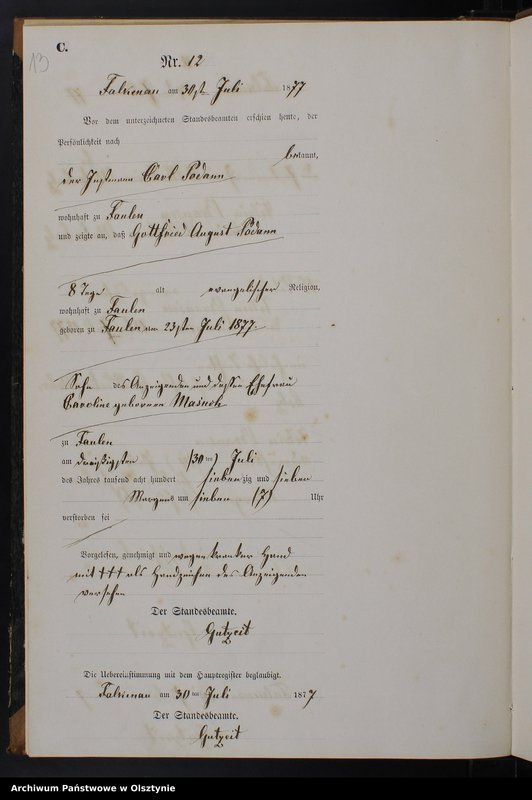 C.
13
Nr. 12
Falkenau am 30st Juli 1877
Vor dem unterzeichneten Standesbeamten erschien heute, der
Persönlichkeit nach
bekannt,
der Instmann Carl Padann
wohnhaft zu Faulen
und zeigte an, daß Gottfried August Padann
8 Tage alt evangelischer Religion,
wohnhaft zu Faulen
geboren zu Faulen am 23sten Juli 1877.
Sohn des Anzeigenden und dessen Ehefrau
Caroline geborenen Masuch
zu Faulen
am dreißigsten (30ten) Juli
des Jahres tausend acht hundert siebenzig und sieben
Morgens um sieben (7) Uhr
verstorben sei
Vorgelesen, genehmigt und wegen kranker Hand
mit ††† als Handzeichen des Anzeigenden
versehen
Der Standesbeamte.
Gutzeit
Die Uebereinstimmung mit dem Hauptregister beglaubigt.
Falkenau am 30ten Juli 1877
Der Standesbeamte.
Gutzeit
Archiwum Państwowe w Olsztynie